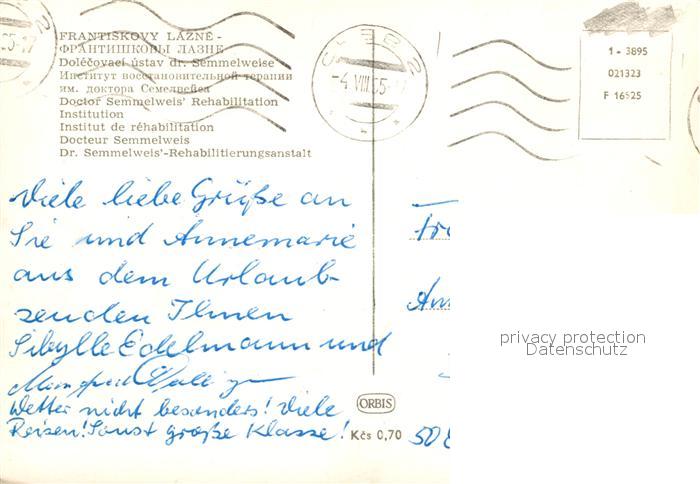 FRANTIŠKOVY LÁZNĚ -
ФРАНТИШКОВЫ ЛАЗНЕ
Doléčovací ústav dr. Semmelweise
Институт восстановительной терапии
им. доктора Семелвейса
Doctor Semmelweis' Rehabilitation
Institution
Institut de réhabilitation
Docteur Semmelweis
Dr. Semmelweis'-Rehabilitierungsanstalt
CHEB 2
-4.VIII.65-17
1 - 3895
021323
F 16525
Viele liebe Grüße an
Sie und Annemarie
aus dem Urlaub-
senden Ihnen
Sibylle Edelmann und
Manfred
Wetter nicht besonders! Viele
Reisen! Sonst große Klasse!
ORBIS
Kčs 0,70
privacy protection
Datenschutz